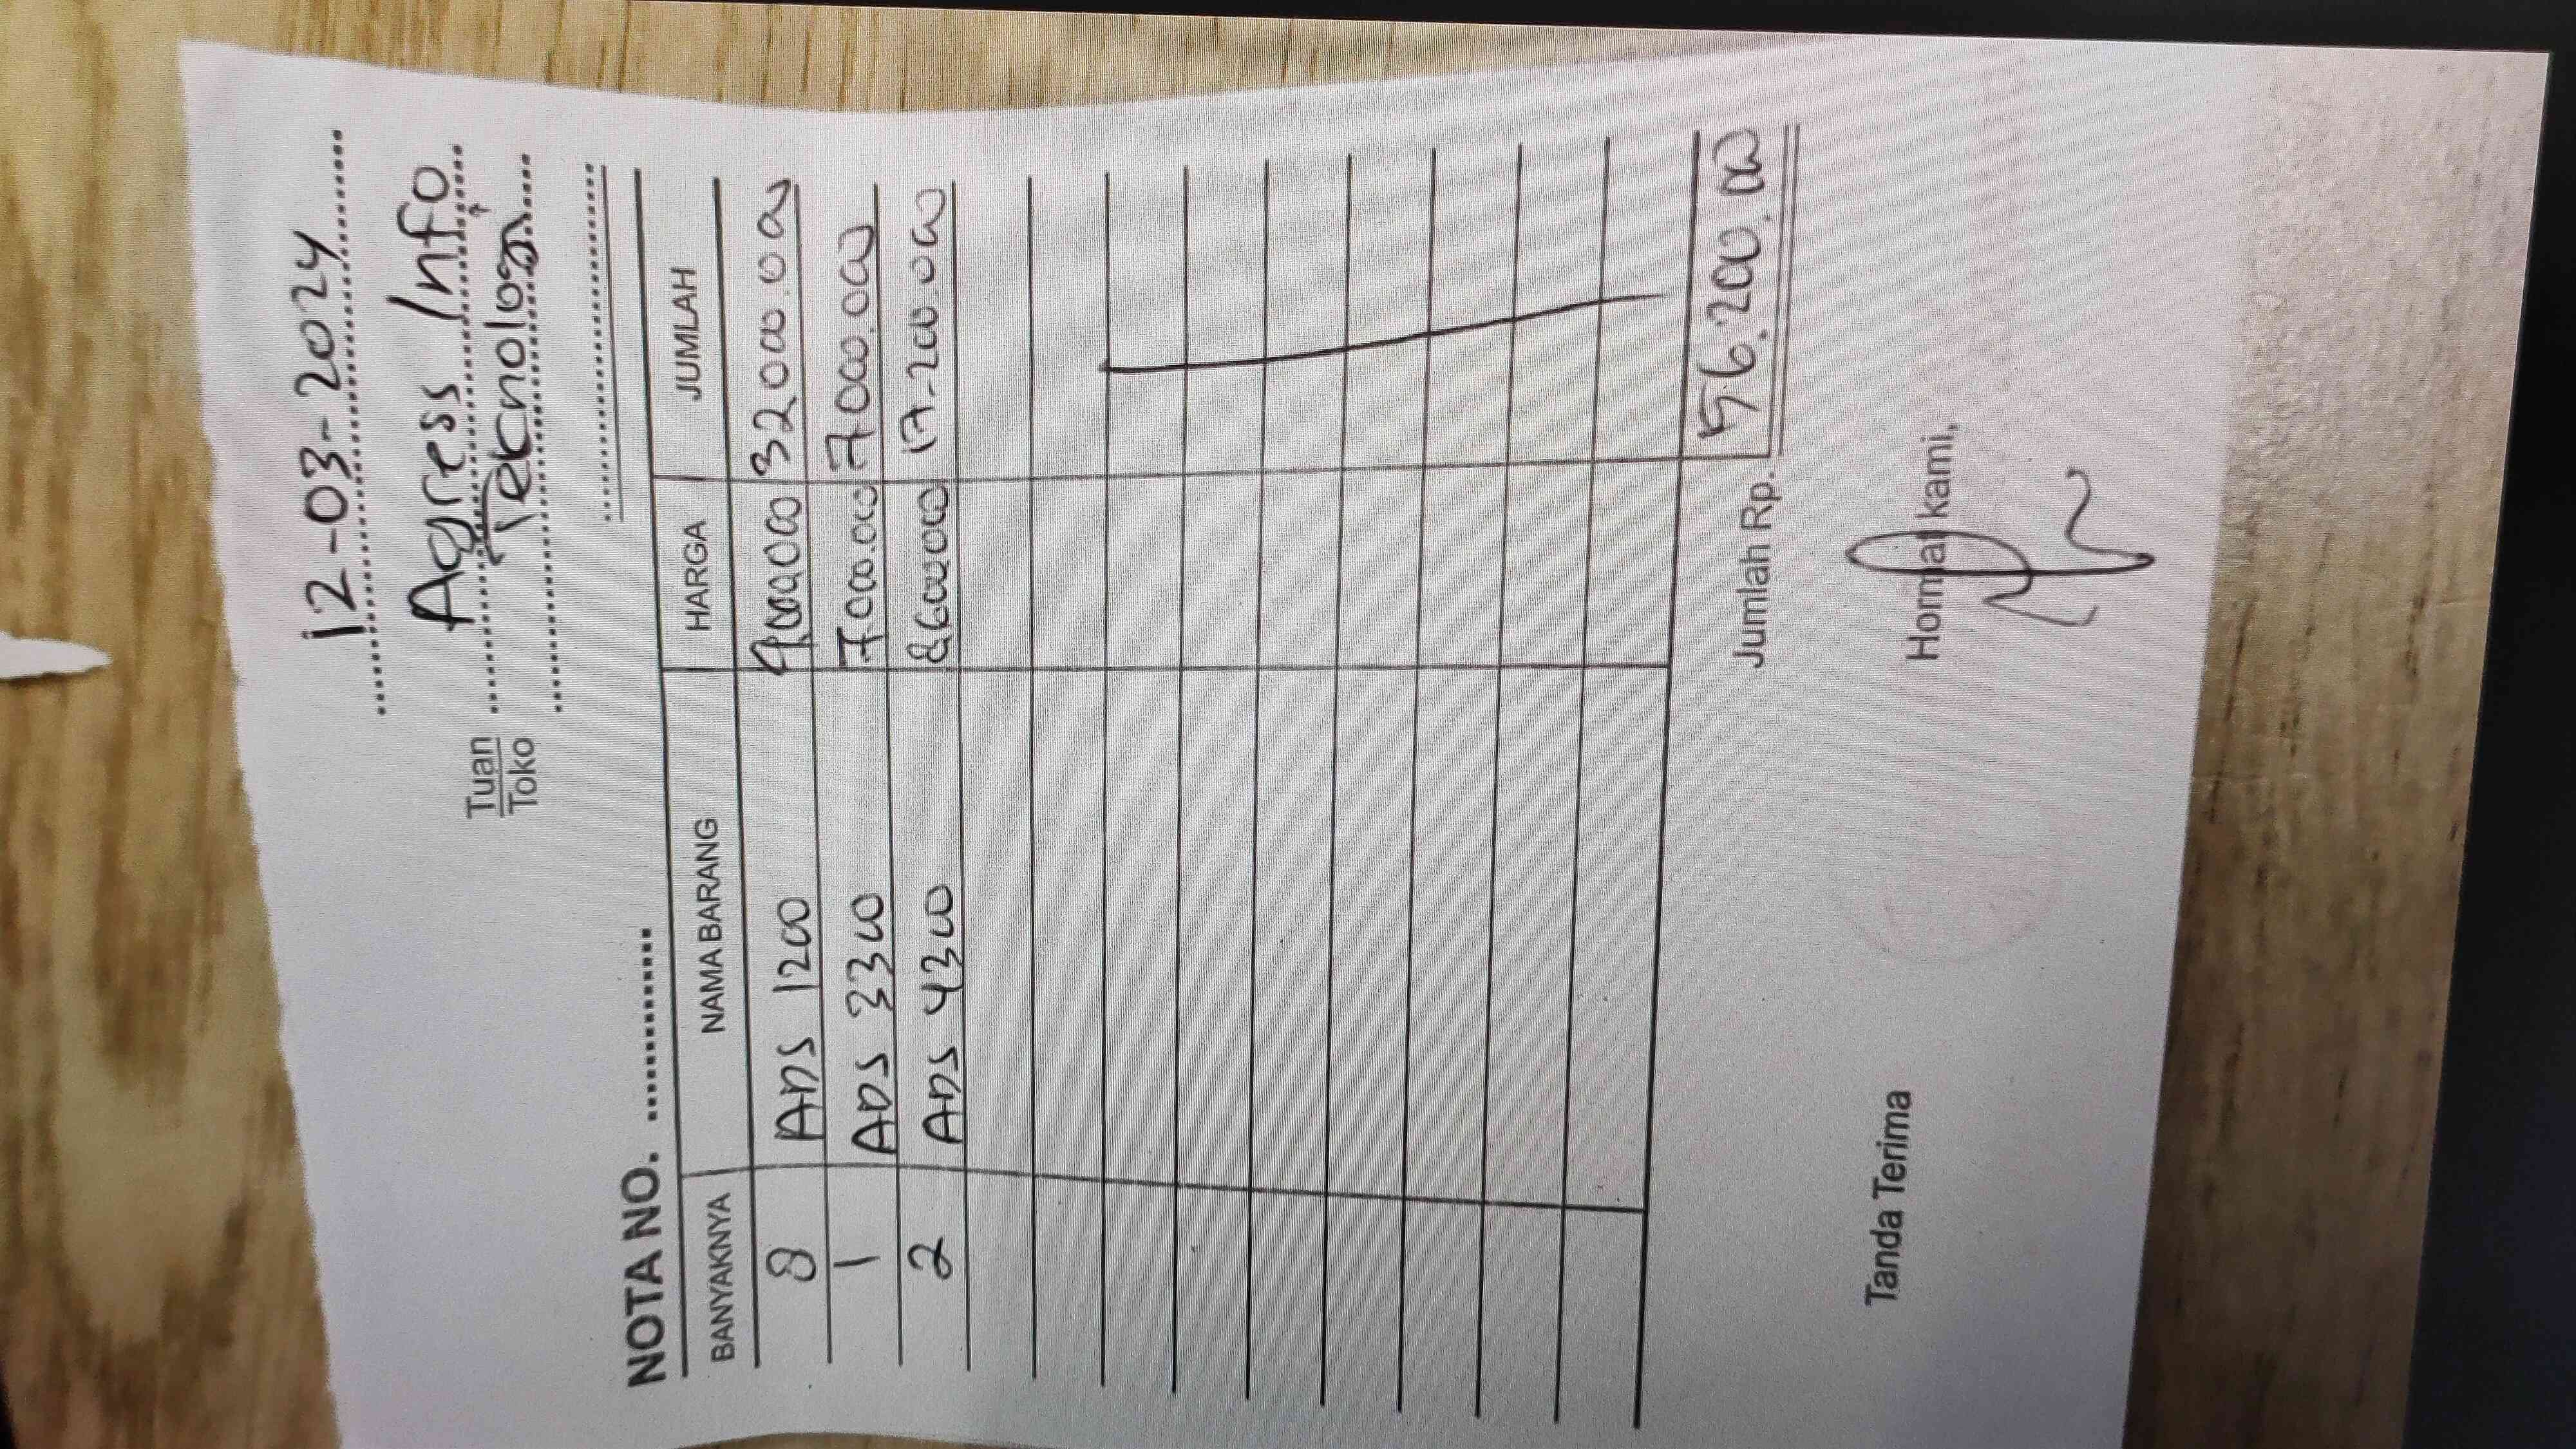 12-03-2024
Agress Info
Tuan
Toko
Teknologi
NOTA NO.
BANYAKNYA NAMA BARANG HARGA JUMLAH
8 ADS 1200 4000000 32000.000
1 ADS 3300 7.000.000 7000.000
2 ADS 4300 8600000 17.200.000
Jumlah Rp. 56.200.000
Tanda Terima Hormat kami,